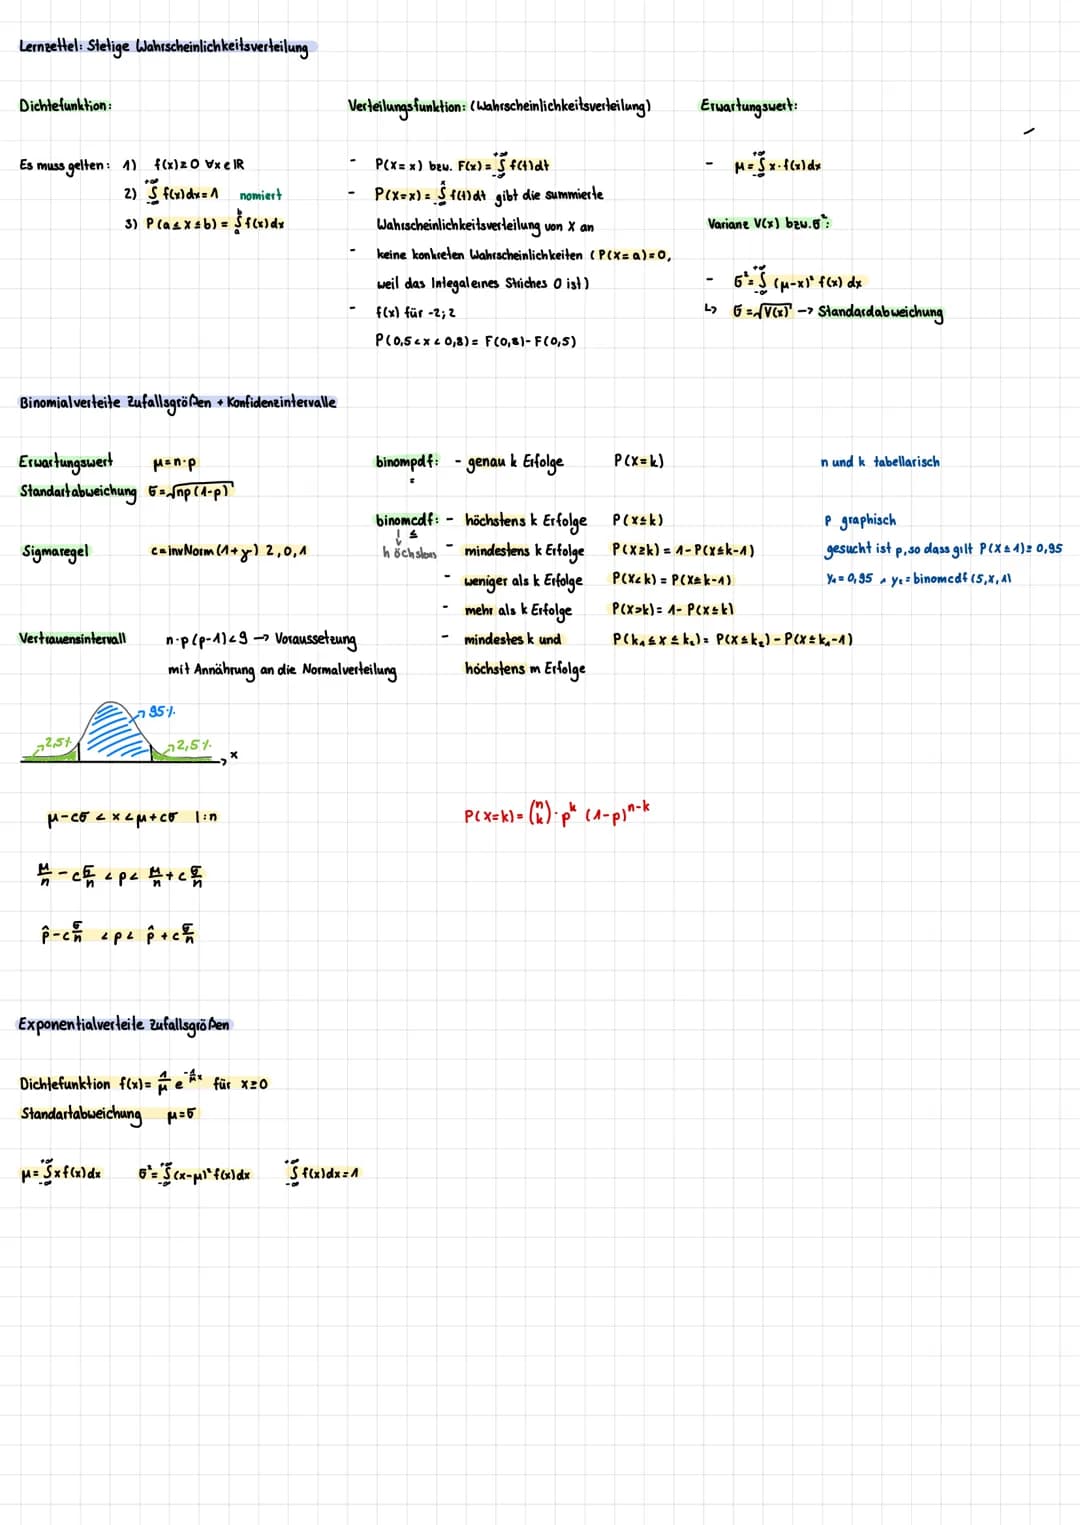 Lernzettel: Stetige Wahrscheinlichkeitsverteilung
Dichtefunktion:
Es muss gelten: 1) f(x)≥0 ∀x∈ℝ
2) ∫_{-∞}^{+∞} f(x)dx=1 nomiert
3) P(a≤x≤b) = ∫_a^b f(x)dx
Verteilungsfunktion: (Wahrscheinlichkeitsverteilung)
- P(X=x) bzw. F(x) = ∫_{-∞}^{+∞} f(t)dt
- P(X=x) = ∫_{-∞}^{x} f(t)dt gibt die summierte
Wahrscheinlichkeitsverteilung von X an
- keine konkreten Wahrscheinlichkeiten (P(X=a)=0,
weil das Integal eines Striches 0 ist)
- f(x) für -2;2
P(0,5<x<0,8) = F(0,8)-F(0,5)
Erwartungswert:
- μ=∫_{-∞}^{+∞} x·f(x)dx
Variane V(x) bzw. σ²:
- σ²=∫_{-∞}^{+∞} (μ-x)² f(x) dx
↳ σ=√V(x) → Standardabweichung
Binomialverteite Zufallsgrößen + Konfidenzintervalle
Erwartungswert μ=n·p
Standartabweichung σ=√np(1-p)
Sigmaregel c=invNorm(1+γ) 2,0,1
Vertrauensintervall n·p(p-1)<9 → Voraussetzung
mit Annährung an die Normalverteilung
2,5% 95% 2,5% x
μ-cσ < x < μ+cσ |:n
μ/n - c σ/n < p < μ/n + c σ/n
p̂-c σ/n < p < p̂ + c σ/n
binompdf: - genau k Erfolge P(X=k)
=
binomcdf: - höchstens k Erfolge P(X≤k)
≤
höchstens
- mindestens k Erfolge P(X≥k) = 1-P(X≤k-1)
- weniger als k Erfolge P(X<k) = P(X≤k-1)
- mehr als k Erfolge P(X>k) = 1- P(X≤k)
- mindestes k und P(k₁≤x≤k₂) = P(X≤k₂)-P(X≤k₁-1)
höchstens m Erfolge
n und k tabellarisch
P graphisch
gesucht ist p, so dass gilt P(X≤1)≥0,95
y₁=0,95 ∧ y₂=binomcdf(5,X,1)
P(X=k) = (n k)·p^k (1-p)^{n-k}
Exponentialverteile Zufallsgrößen
Dichtefunktion f(x) = 1/μ e^{-1/μ x} für x≥0
Standartabweichung μ=σ
μ=∫_{-∞}^{+∞} x f(x)dx σ²=∫_{-∞}^{+∞} (x-μ)² f(x)dx ∫_{-∞}^{+∞} f(x)dx=1